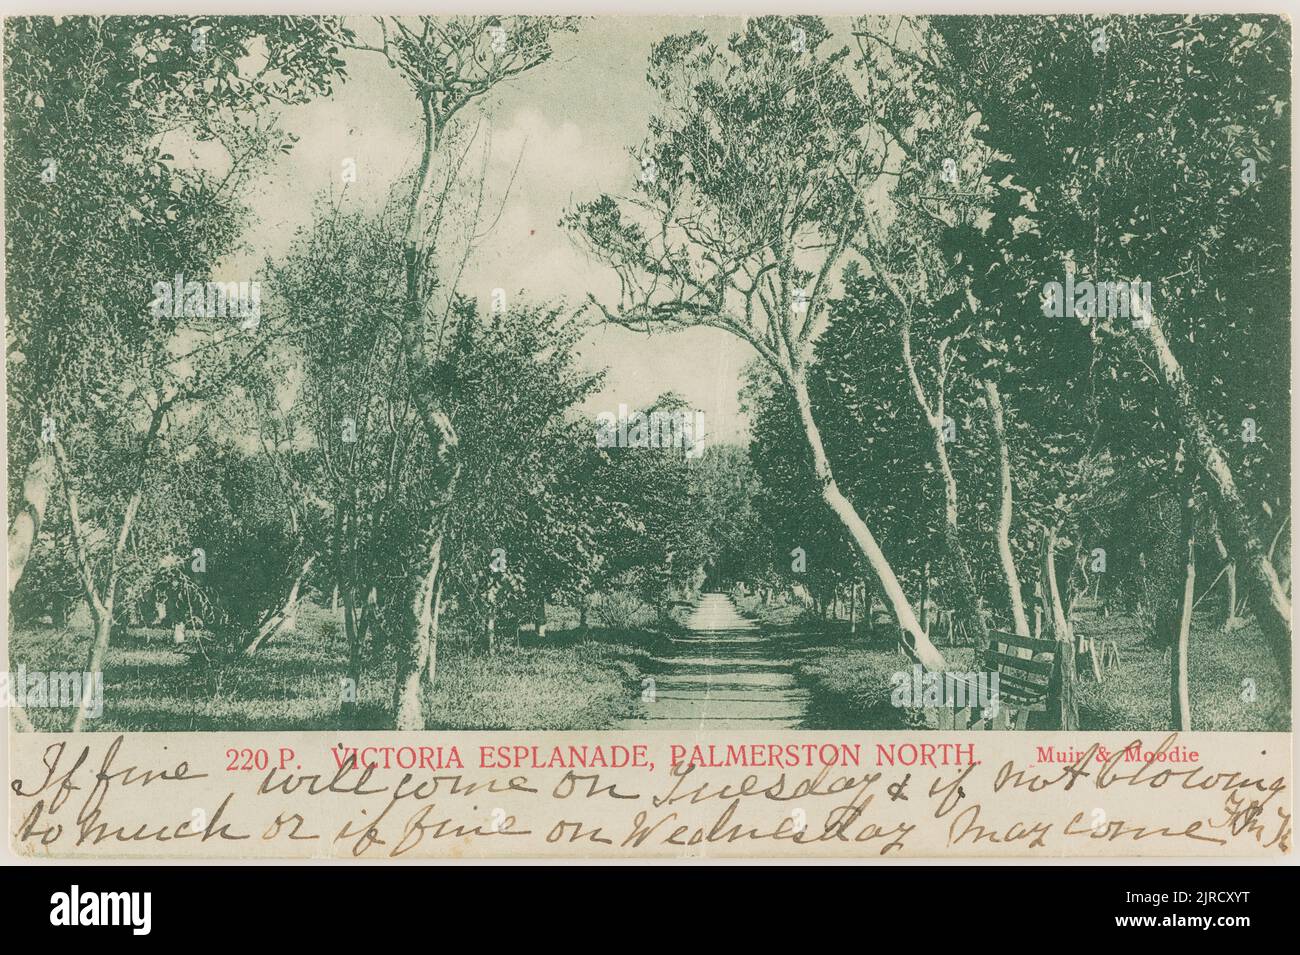 220 P. VICTORIA ESPLANADE, PALMERSTON NORTH. Muir & Moodie
If fine will come on Tuesday & if not blowing
to much or if fine on Wednesday may come
alamy
Image ID: 2JRCXYT
www.alamy.com